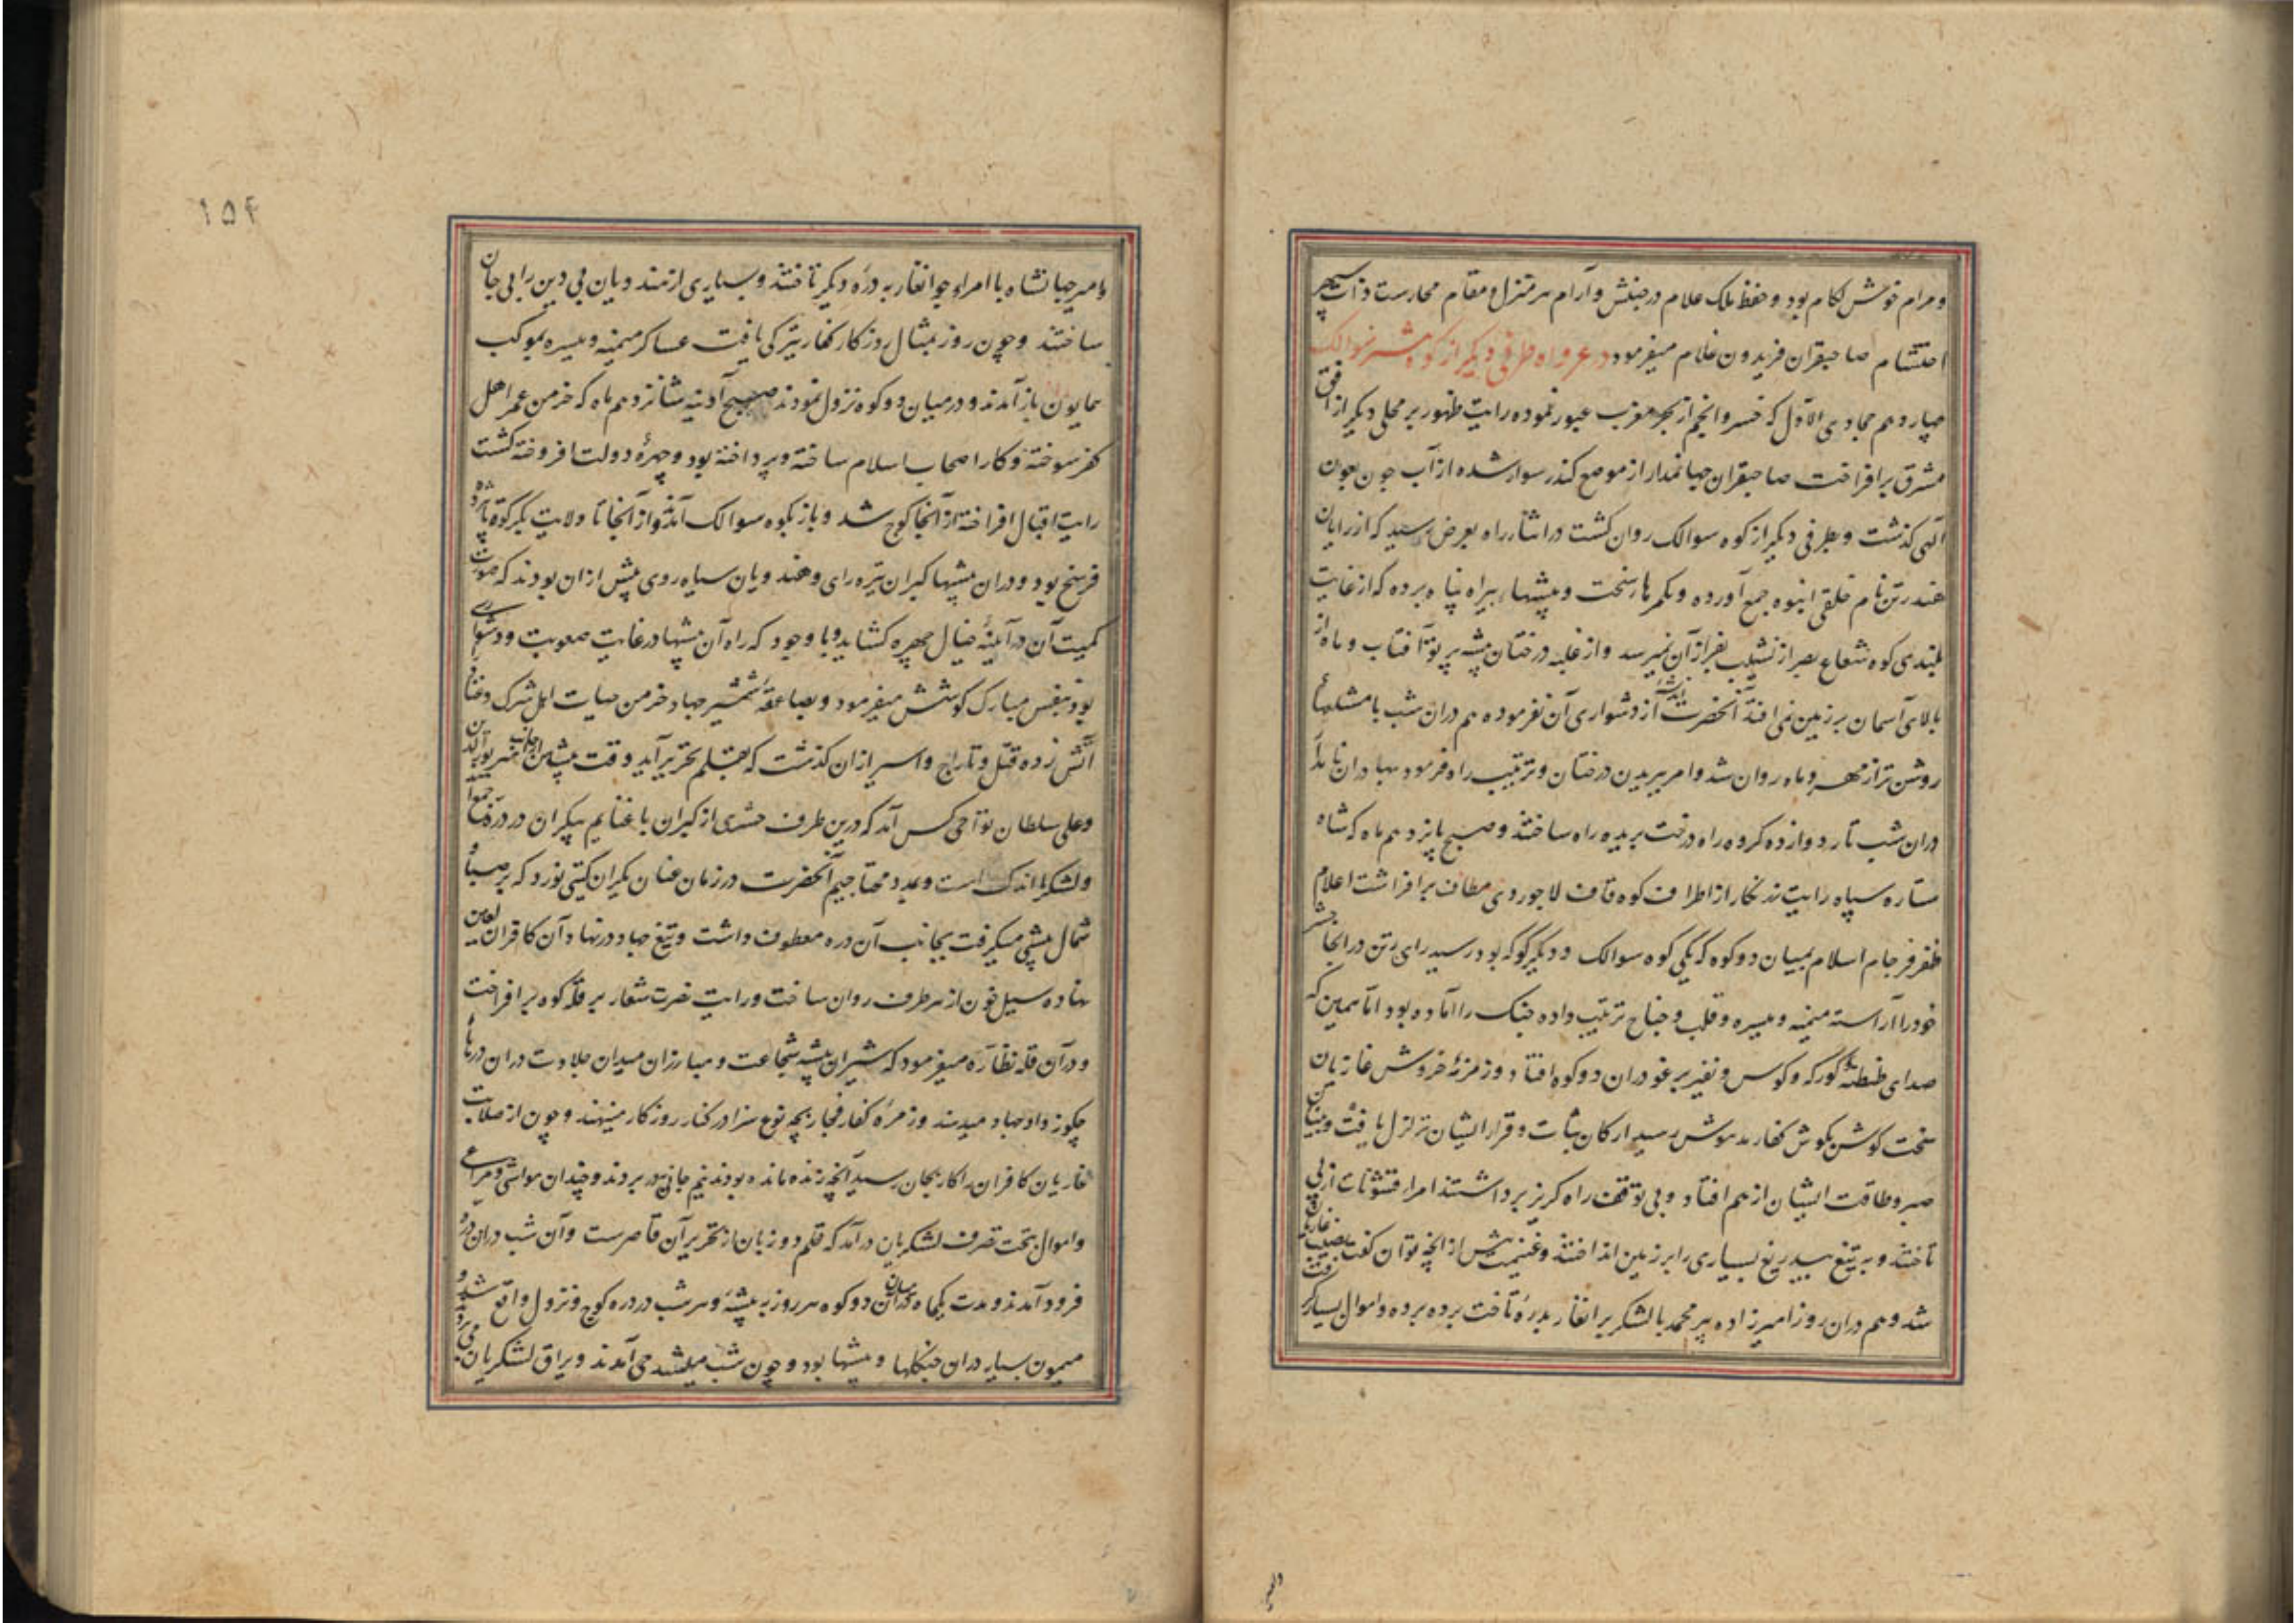 و مرام خوش لکام بود و حفظ ملک علام در جنبش و آرام هر منزل و مقام محارست ذات سپهر
احتشام صاحبقران فریدون غلام میفرمود در غزوات طرفی دیگر از کوه سوالک
چهاردهم جمادی الاول که خسرو انجم از بحر مغرب عبور نموده رایت ظهور بر محلی دیگر از افق
مشرق برافراخت صاحبقران جهانمدار از موضع کندر سوار شده از آب جون بعون
الهی کذشت و بطرفی دیگر از کوه سوالک روان کشت در اثناء راه بعرض رسید که از رایان
هند رتن نام خلقی انبوه جمع آورده و بکمرها سخت و بیشها بیراه پناه برده که از غایت
بلندی کوه شعاع بصر از نشیب بفراز آن نمیرسد و از غلبه درختان بیشه پرتو آفتاب و ماه از
بالای آسمان بر زمین نمی افتد آنحضرت اندیشه از دشواری آن نفرموده هم دران شب با مشعلهاء
روشن تر از مهر و ماه روان شد و امر ببریدن درختان و ترتیب راه فرمود بهادران نامدار
دران شب تار دوازده کروه راه درخت بریده راه ساختند و صبح پانزدهم ماه که شاه
ستاره سپاه رایت زرنکار از اطراف کوه قاف لاجوردی مطاف برافراشت اعلام
ظفر فرجام اسلام بمیان دو کوه که یکی کوه سوالک و دیگر کوکه بود رسید رای رتن در انجا حشر
خود را آراسته میمنه و میسره و قلب و جناح ترتیب داده جنک را آماده بود اما همین که
صدای طنطنه کورکه و کوس و نفیر برغو دران دو کوه افتاد و زمزمهٔ خروش غازیان
سخت کوش بکوش کفار مدهوش رسید ارکان ثبات و قرار ایشان تزلزل یافت و بنیان
صبر و طاقت ایشان از هم افتاد و بی توقف راه کریز برداشتند امراء قشونات از پی
تاختند و به تیغ بیدریغ بسیاری را بر زمین انداختند و غنیمت بیش از انچه توان کفت نصیب غازیان
شد و هم دران روز امیرزاده پیر محمد با لشکر برانغار بدرهٔ تاخت برده برده و اموال بسیار کرفت
۱۵۴
و امیر جهانشاه با امراء جوانغار به درهٔ دیگر تاختند و بسیاری از هندویان بی دین را بی جان
ساختند و چون روز بمثال روزکار کفار تیرکی یافت عساکر میمنه و میسره بموکب
همایون باز آمدند و در میان دو کوه نزول نمودند صبح آدینه شانزدهم ماه که خرمن عمر اهل
کفر سوخته و کار اصحاب اسلام ساخته و پرداخته بود و چهرهٔ دولت افروخته کشت
رایت اقبال افراخته از آنجا کوچ شد و باز بکوه سوالک آمد و از آنجا تا ولایت بکرکوت پانزده
فرسخ بود و دران بیشها کبران تیره رای و هندویان سیاه روی بیش ازان بودند که صورت
کمیت آن در آینهٔ خیال چهره کشاید و با وجود که راه آن بیشها در غایت صعوبت و دشواری
بود بنفس مبارک کوشش میفرمود و بصاعقهٔ شمشیر جهاد خرمن حیات اهل شرک و عناد
آتش زده قتل و تاراج و اسیر ازان کذشت که بقلم تحریر آید وقت پیشین امیر
و علی سلطان تواجی کس آمد که درین طرف حشری از کبران با غنایم بیکران در درهٔ
و لشکر ما اندک است و بمدد محتاجیم آنحضرت در زمان عنان یکران کیتی نورد که بر صبا و
شمال پیشی میکرفت بجانب آن دره معطوف داشت و تیغ جهاد در نهاد آن کافران لعین
نهاده سیل خون از هر طرف روان ساخت و رایت نصرت شعار بر قلهٔ کوه برافراخت
و در آن قله نظاره میفرمود که شیران بیشه شجاعت و مبارزان میدان جلادت دران درهاء
چکونه داد جهاد میدهند و زمرهٔ کفار فجار بچه نوع سزا در کنار روزکار مینهند و چون از صلابت
غازیان کافران را کار بجان رسید آنچه زنده مانده بودند نیم جانی بدر بردند و چندان مواشی و مراعی
و اموال بتحت تصرف لشکریان در آمد که قلم دو زبان از تحریر آن قاصرست و آن شب دران دره
فرود آمدند و مدت یکماه دران میان دو کوه هر روز به بیشهٔ و هر شب در دره کوچ و نزول واقع شد و
میمون بسیار دران جنکلها و بیشها بود و چون شب میشد می آمدند و یراق لشکریان می بردند